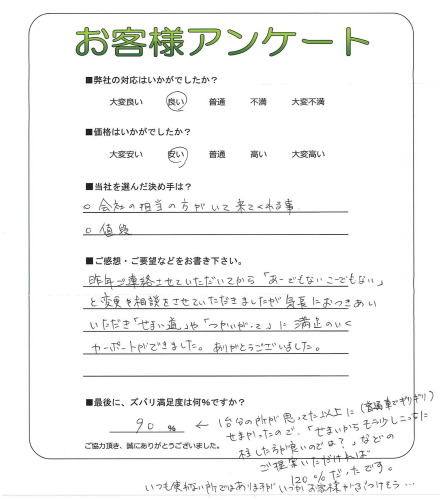 お客様アンケート
■弊社の対応はいかがでしたか?
大変良い 良い 普通 不満 大変不満
■価格はいかがでしたか?
大変安い 安い 普通 高い 大変高い
■当社を選んだ決め手は?
○ 会社の担当の方がいて来てくれる事.
○ 値段
■ご感想・ご要望などをお書き下さい。
昨年ご連絡させていただいてから「あーでもないこーでもない」
と変更や相談をさせていただきましたが気長におつきあい
いただき「せまい道」や「つかいがって」に満足のいく
カーポートができました。ありがとうございました。
■最後に、ズバリ満足度は何%ですか?
90 %
← 1台分の所が思ってた以上に(普通車でギリギリ)
せまかったので、「せまいからもう少しこっちに
した方が良いのでは?」などの
ご提案いただければ
120%だったです。
ご協力頂き、誠にありがとうございました。
いつも使わない所ではありますがいつかお客様がぶつけそう…